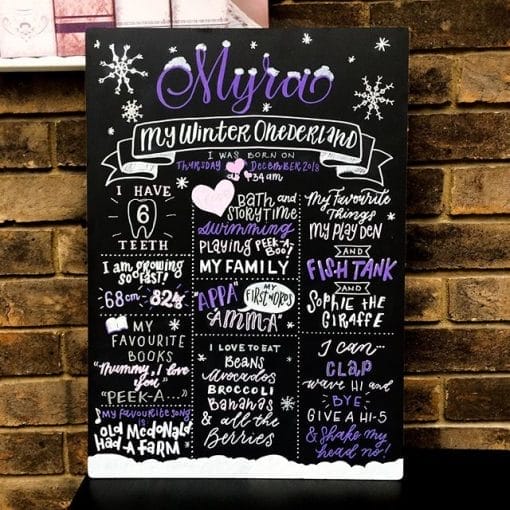 Myra
My Winter Onederland
I WAS BORN ON
THURSDAY DECEMBER 2018
34am
I HAVE
6
TEETH
I am growing
so fast!
68cm
MY
FAVOURITE
BOOKS
"Mummy, I love
you"
"PEEK-A...."
My favourite song
is
OLD McDONALD
HAD A FARM
BATH and
STORYTIME
swimming
PLAYING PEEK-A-
BOO!
MY FAMILY
"APPA"
MY
FIRST WORDS
AMMA"
I LOVE TO EAT
BEANS
Avocados
BROCCOLI
BANANAS
& all the
Berries
My Favourite
Things
MY PLAY DEN
AND
FISH TANK
AND
SOPHIE THE
GIRAFFE
I can...
CLAP
wave Hi and
BYE
GIVE A HI-5
& shake my
head no!